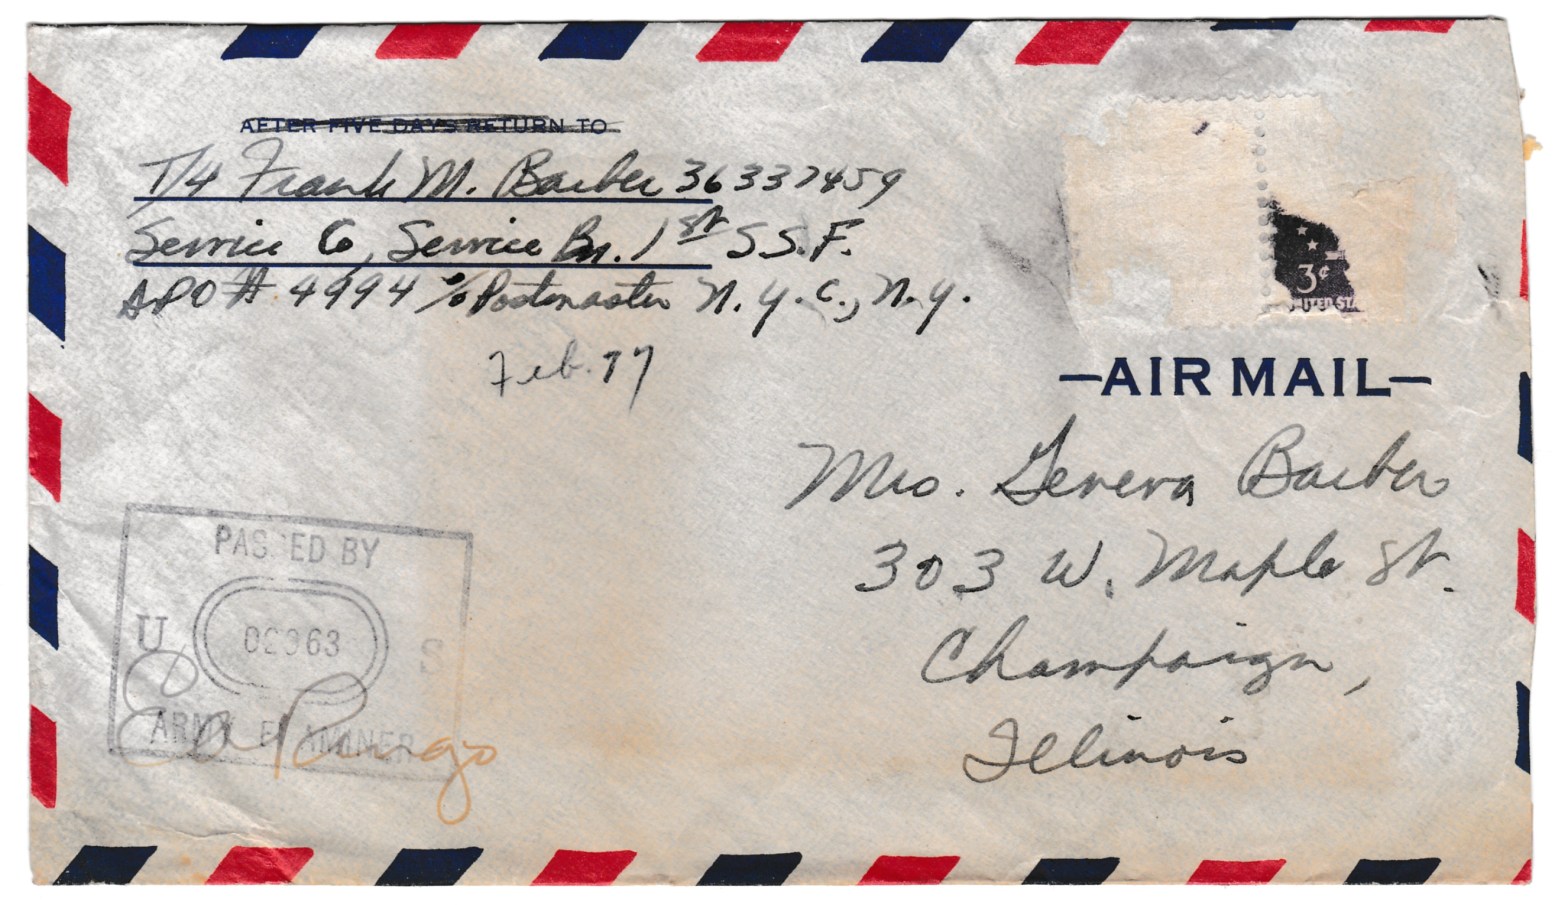 AFTER FIVE DAYS RETURN TO
T/4 Frank M. Barber 36337459
Service Co, Service Bn. 1st S.S.F.
APO # 4994 c/o Postmaster N.Y.C., N.Y.
Feb. 17
3¢
UNITED STA
—AIR MAIL—
Mrs. Geneva Barber
303 W. Maple St.
Champaign,
Illinois
PASSED BY
U 02963 S
ARMY EXAMINER